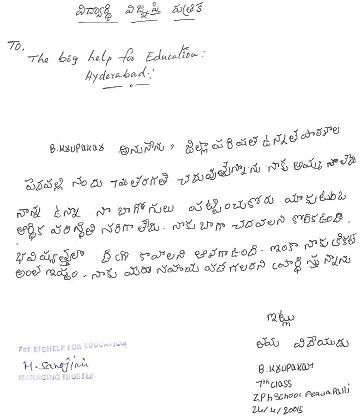 విద్యార్థి విజ్ఞప్తి పత్రిక
To,
The big help for Education:
Hyderabad:
B.Krupakar అనునేను, జిల్లా పరిషత్ ఉన్నత పాఠశాల
పెరపల్లి నందు 7వతరగతి చదువుతున్నాను నాకు అమ్మ
నాన్న ఉన్నా నా బాగోగులు పట్టించుకోరు మాకుటుంబ
ఆర్థిక పరిస్థితి సరిగా లేదు. నాకు బాగా చదవాలని కోరికఉంది.
భవిష్యత్తులో కావాలని ఆశగాఉంది. ఇంకా నాకు క్రికెట్
అంటే ఇష్టం. నాకు మీరు సహాయ పడగలరని ప్రార్థిస్తున్నాను
ఇట్లు
తమ విధేయుడు
B.Krupakar
7th class
Z.P.H School
24/4/2005
For BIGHELP FOR EDUCATION
MANAGING TRUSTEE